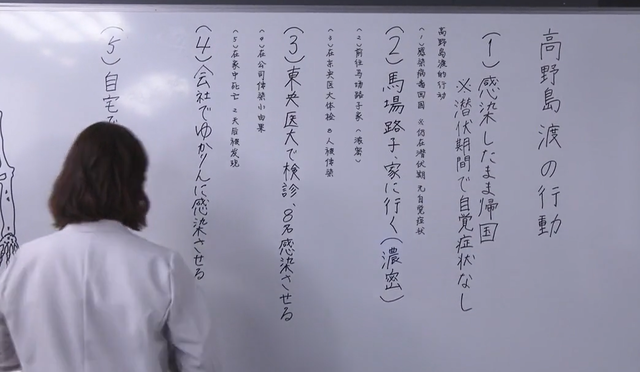 高野島渡の行動
(1)感染したまま帰国
※潜伏期間で自覚症状なし
高野岛渡的行动
(1)感染病毒回国 ※仍在潜伏期 无自觉症状
(2)馬場路子、家に行く(濃密)
(2)前往马场路子家(浓密)
(3)在东央医大体检 8人被传染
(3)東央医大で検診、8名感染させる
(4)在公司传染小由果
(4)会社でゆかりんに感染させる
(5)在家中死亡 2天后被发现
(5)自宅で